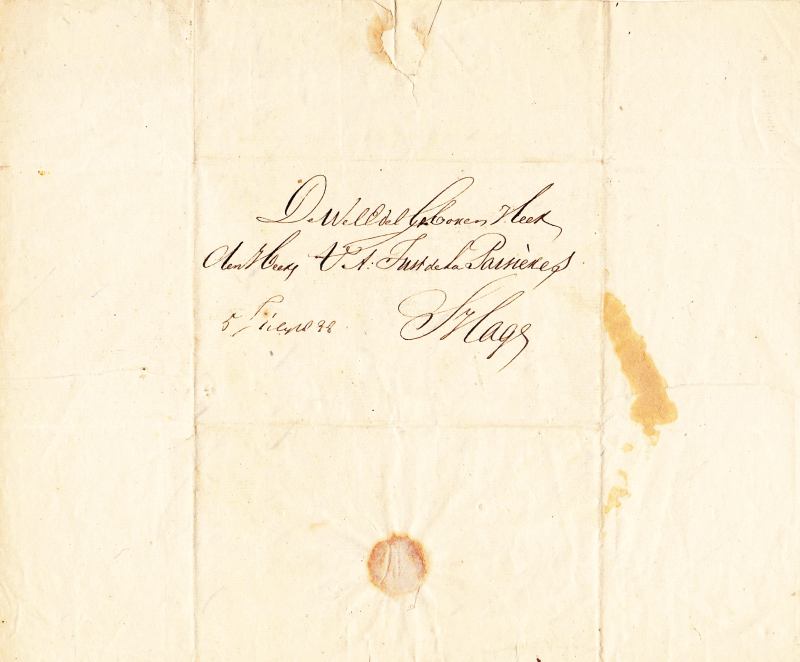 De WelEdel Geboren Heer
den Heer A: Just de La Paisière
S Hage